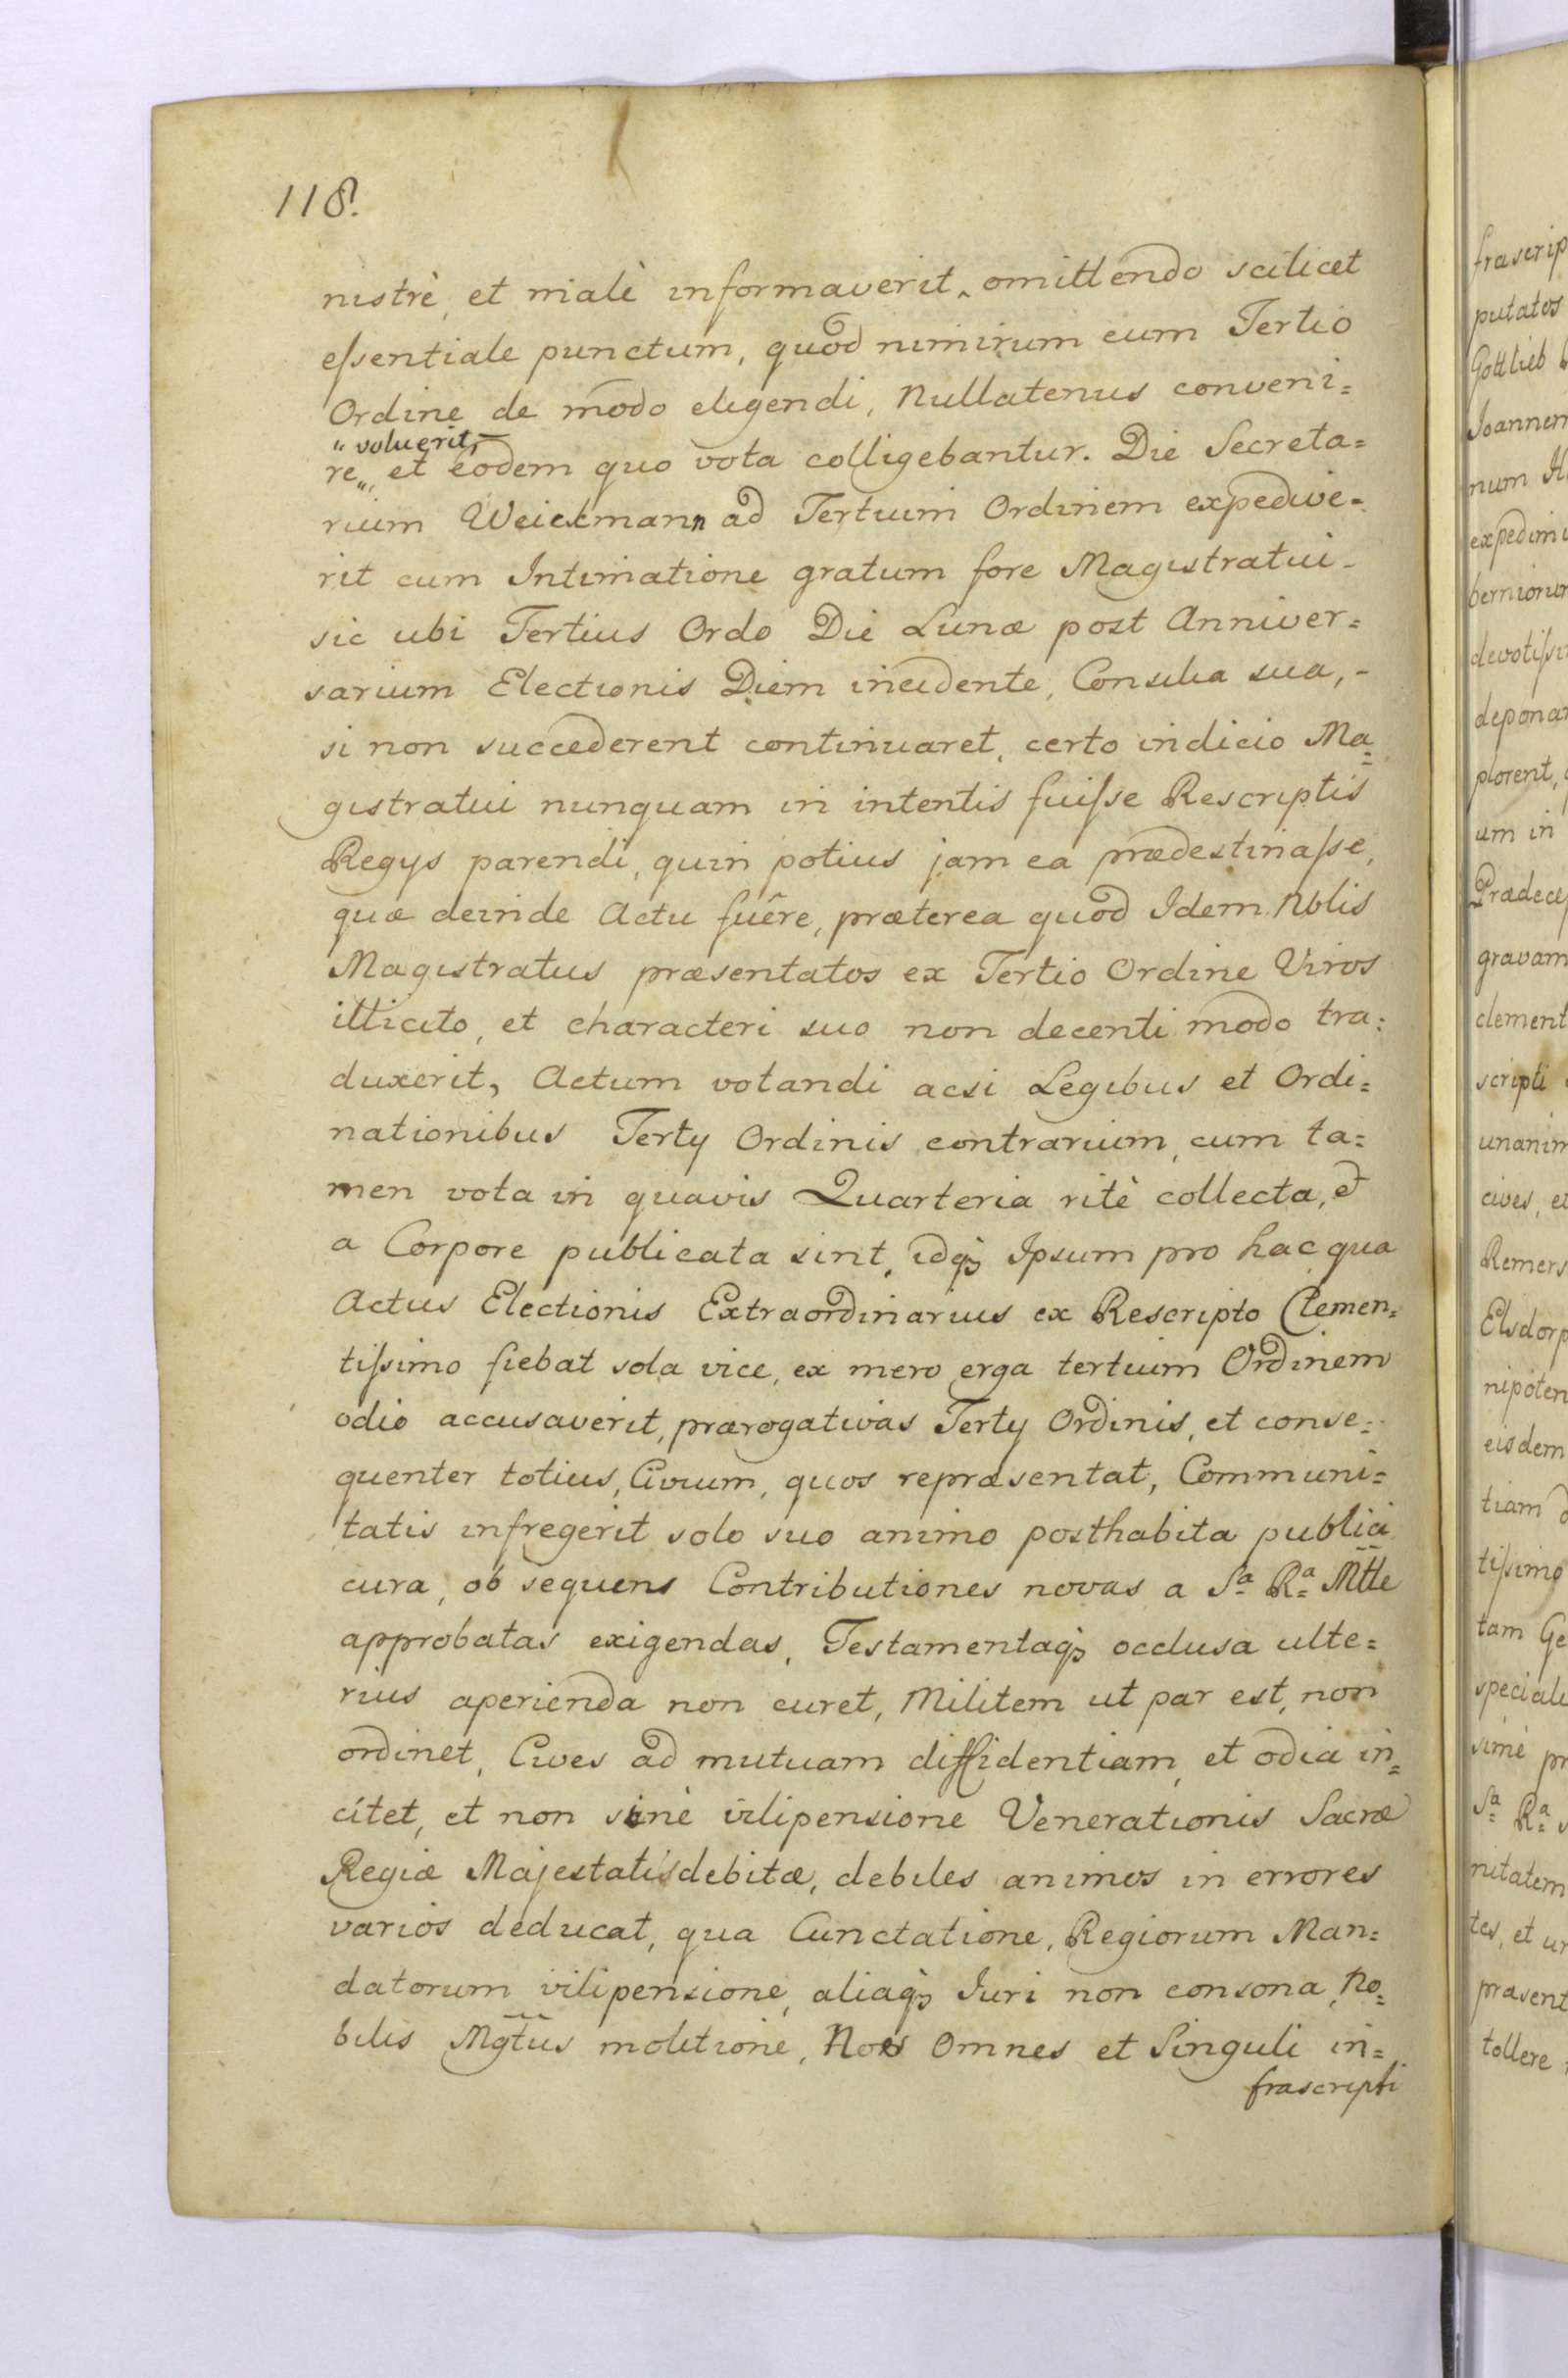 118.
nistrè, et malè informaverit, omittendo scilicet
essentiale punctum, quod nimirum cum Tertio
Ordine de modo eligendi, Nullatenus conveni=
„voluerit,
re„, et eodem quo vota colligebantur. Die Secreta=
rium Weickmann ad Tertium Ordinem expedive=
rit cum Intimatione gratum fore Magistratui
sic ubi Tertius Ordo Die Lunæ post Anniver=
sarium Electionis Diem incidente, Consilia sua,-
si non succederent continuaret, certo indicio Ma=
gistratui nunquam in intentis fuisse Rescriptis
Regys parendi, quin potius jam ea prædestinasse,
quæ deinde Actu fuêre, præterea quod Idem Nblis
Magistratus præsentatos ex Tertio Ordine Viros
illicito, et characteri suo non decenti modo tra=
duxerit, Actum votandi acsi Legibus et Ordi=
nationibus Terty Ordinis contrarium, cum ta=
men vota in quavis Quarteria ritè collecta, et
a Corpore publicata sint, idq; Ipsum pro hac qua
Actus Electionis Extraordinarius ex Rescripto Clemen=
tissimo fiebat sola vice, ex mero erga tertium Ordinem
odio accusaverit, prærogativas Terty Ordinis, et conse=
quenter totius, Civium, quos repræsentat, Communi=
tatis infregerit solo suo animo posthabita publici
cura, ob sequens Contributiones novas a Sa Ra Mtte
approbatas exigendas, Testamentaq; occlusa ulte=
rius aperienda non curet, Militem ut par est, non
ordinet, Cives ad mutuam diffidentiam, et odia in=
citet, et non sinè vilipensione Venerationis Sacræ
Regiæ Majestatis debitæ, debiles animos in errores
varios deducat, qua Cunctatione, Regiorum Man=
datorum vilipensione, aliaq; Iuri non consona, No=
bilis Mgtus molitione, Nos Omnes et Singuli in=
frascripti
frascrip
putatos
Gottlieb
Joannem
num
expedimu
berniorum
devotissi
deponan
plorent,
um in
Prædece
gravam
clement
scripti
unanim
cives, et
Remers
Elsdorp
nipoten
eisdem
tiam
tissimo
tam Ge
speciali
simè pr
Sa Ra
nitatem
tes, et un
præsent
tollere